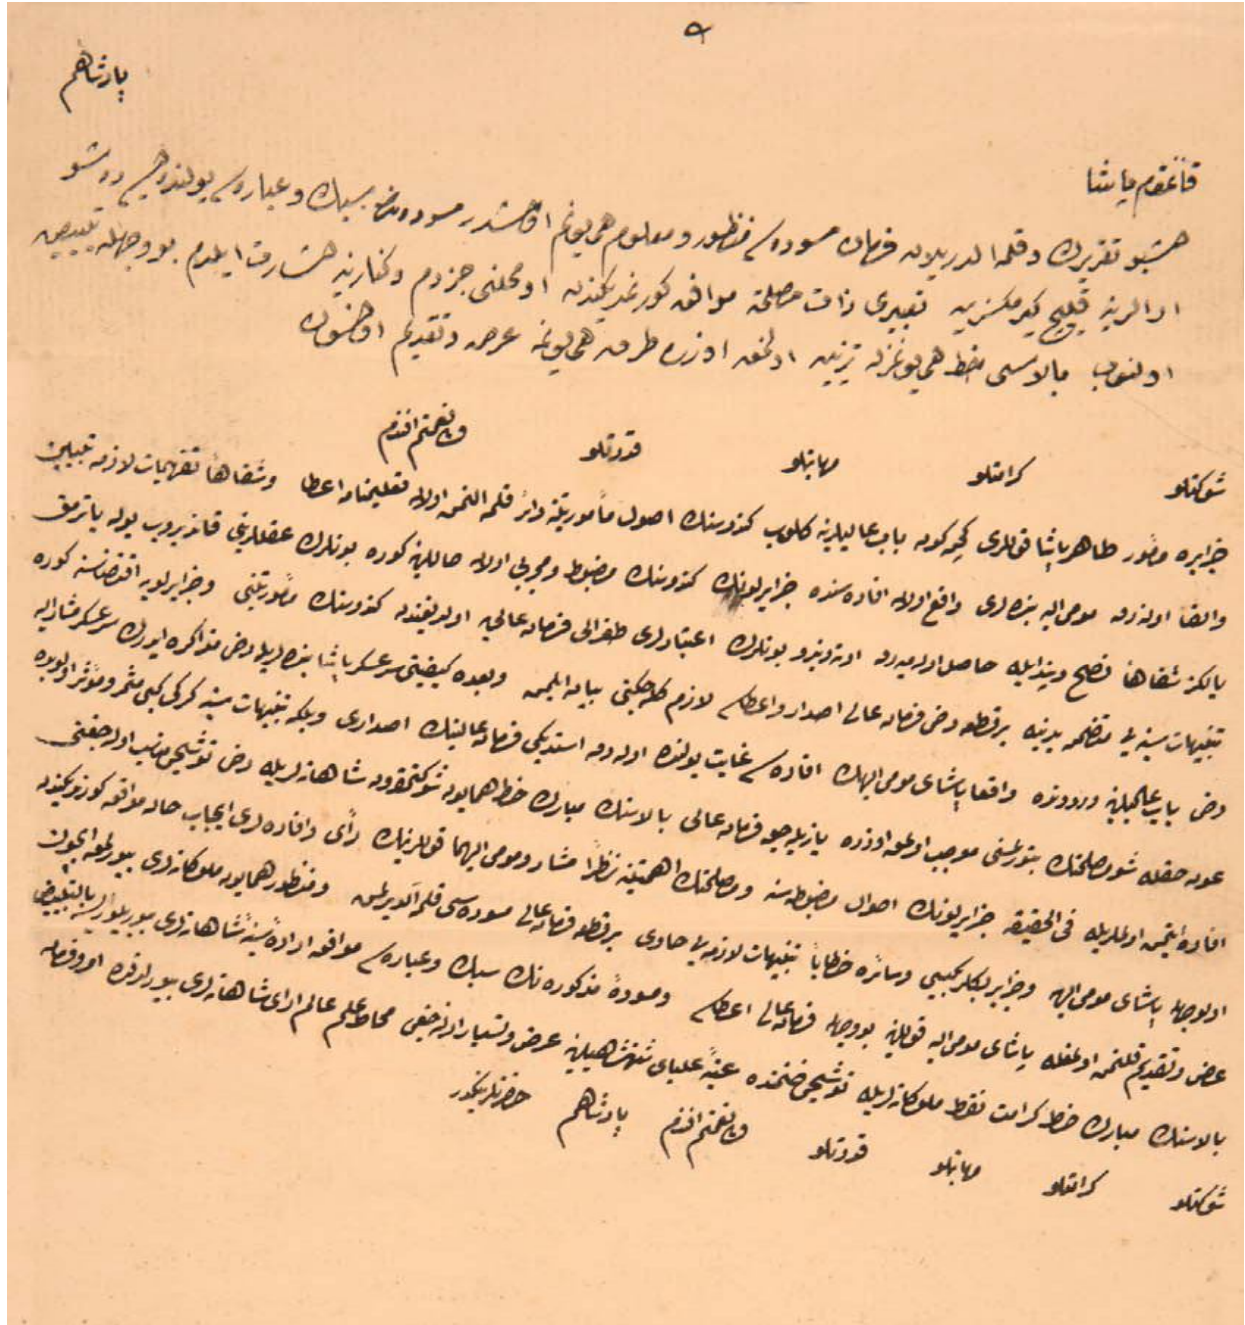 پادشاهم
قائمقام پاشا
اشبو تقريرك وقلمه الدريلان فرمان مسوده سی منظور ومعلوم همايونم اولمشدر مسوده نك سبك وعباره سی يولنده ايسه ده شو
ارالرينه قليج تعبيری ذات مصلحته موافق كورنمديكندن او محلنی چزدم وكنارينه اشارت ايلدم بو وجهله تبييض
اولنوب بالاسی خط همايونمزله تزيين اولنمق اوزره طرف همايونمه عرض وتقديم اولنسون
شوكتلو كرامتلو مهابتلو قدرتلو ولی نعمتم افندم
جزايره مأمور طاهر پاشا قوللری كچن كون باب عاليلرينه كلوب كندوسنك اصول مأموريتنه دائر قلمه النمش اولان تعليمنامه اعطا وشفاها تفهيمات لازمه تبيين
والقا اولندقده مومی اليه بنده لری واقع اولان افاده سنده جزايرلونك كندوسنك مضبوط ومجربی اولان حاللرينه كوره بونلرك عقللرينی قاندیروب يوله ياترمق
يالكز شفاها نصح وپند ايله حاصل اوله ميوب اوتەدنبرو بونلرك اعتبارلری طغرالی فرمان عالی اولديغندن كندوسنك مأموريتنی وجزايرلويه اقتضاسنه كوره
تنبيهات سنيه يی متضمن يدينه بر قطعه دخی فرمان عالی اصدار واعطاسی لازم كله جكنی بيان ايلمش وبعده كيفيتی سرعسكر پاشا بنده لريله دخی مذاكره ايدرك سرعسكر مشار اليه
دخی باب عاليلرينه ورودنده واقعا پاشای مومی اليهك افاده سی غايت يولنده اولدرق استديكی فرمان عالينك اصداری وبلكه تنبيهات سنيه كركی كبی مثمر ومؤثر اوليوب ده
عون حقله شو مصلحتك بتورلمسنی موجب اولمق اوزره يازيله جق فرمان عالی بالاسنك مبارك خط همايون شوكتمقرون شاهانه لريله دخی توشيحی مناسب اوله جغنی
افاده ايتمش اولمغله فی الحقيقه جزايرلونك اصول مضبوطه سنه ومصلحتك اهميتنه نظرا مشار ومومی اليهما قوللرينك رأی وافاده لری ايجاب حاله موافق كورنديكندن
اولوجهله پاشای مومی اليه وجزاير بكلربكيسی وسائره خطابا تنبيهات لازمه يی حاوی بر قطعه فرمان عالی مسوده سی قلمه الديرلمش ومنظور همايون ملوكانه لری بيورلمق ايچون
عرض وتقديم قلنمش اولمغله پاشای مومی اليه قوللرينه بووجهله فرمان عالی اعطاسی ومسوده مذكوره نك سبك وعباره سی موافق اراده سنيه شاهانه لری بيوريلور ايسه بالتبييض
بالاسنك مبارك خط كرامت نقط ملوكانه لريله توشيحی ضمننده عتبه عليای شهنشاهيلرينه عرض وتسيار اولنه جغی محاط علم عالم ارای شاهانه لری بيورلدقده امر وفرمان
شوكتلو كرامتلو مهابتلو قدرتلو ولی نعمتم افندم پادشاهم حضرتلرينكدر